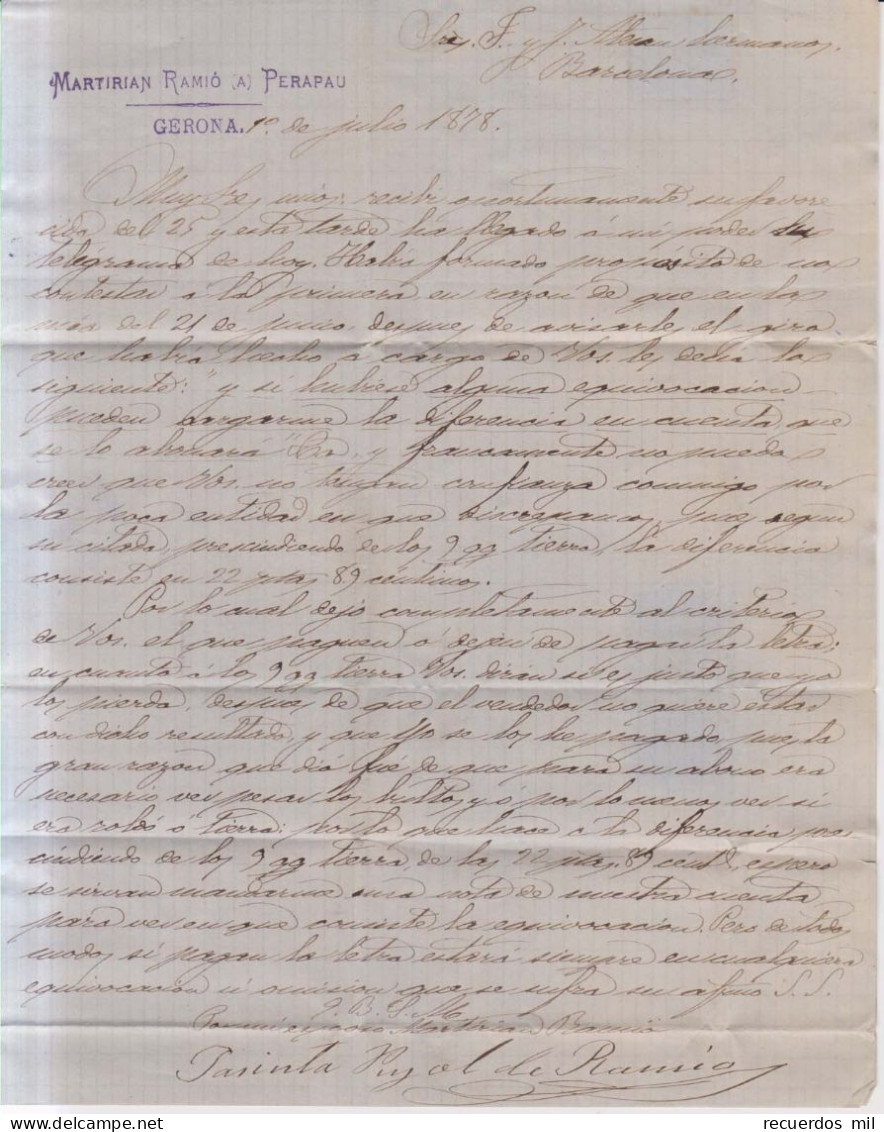 Sres. F. y J. hermanos.
Barcelona.
MARTIRIAN RAMIÓ (A) PERAPAU
GERONA. 1º de julio 1878.
Muy Sres mios: recibí oportunamente su favore
cida del 25 y esta tarde ha llegado á mi poder su
telégrama de hoy. Había formado propósito de no
contestar á la primera en razon de que en la
mia del 21 de junio, despues de avisarles el giro
que había hecho a cargo de Vos. les decia lo
siguiente: "y si hubiese alguna equivocacion
pueden cargarme la diferencia en cuenta que
se lo abonará" y francamente no puedo
creer que Vos. no tengan confianza conmigo por
la poca entidad en que discrepamos, pues segun
su citada, prescindiendo de los 9 qq tierra, la diferencia
consiste en 22 ptas 89 céntimos.
Por lo cual dejo completamente al criterio
de Vos. el que paguen ó dejen de pagar la letra:
en cuanto á los 9 qq tierra Vos. dirán si es justo que yo
los pierda, despues de que el vendedor no quiere estar
con dicho resultado, y que yo se los he pagado, pues la
gran razon que dió fué de que para su abono era
necesario ver pesar los bultos y ó por lo menos ver si
era roldó ó tierra: por lo que hace a la diferencia pres
cindiendo de los 9 qq tierra, de las 22 ptas. 89 cent. espero
se sirvan mandarme una nota de nuestra cuenta
para ver en que consiste la equivocacion. Pero de todos
modos si pagan la letra estará siempre en cualquiera
equivocacion ú omision que se sufra su afmo S. S.
Q. B. S. M.
Por mi esposo Martirian Ramió
Jacinta Pujol de Ramió
recuerdos mil